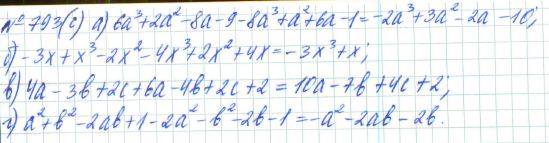 № 793(с) а) 6a³+2a²-8a-9-8a³+a²+6a-1=-2a³+3a²-2a-10;
б) -3x+x³-2x²-4x³+2x²+4x=-3x³+x;
в) 4a-3b+2c+6a-4b+2c+2=10a-7b+4c+2;
г) a²+b²-2ab+1-2a²-b²-2b-1=-a²-2ab-2b.